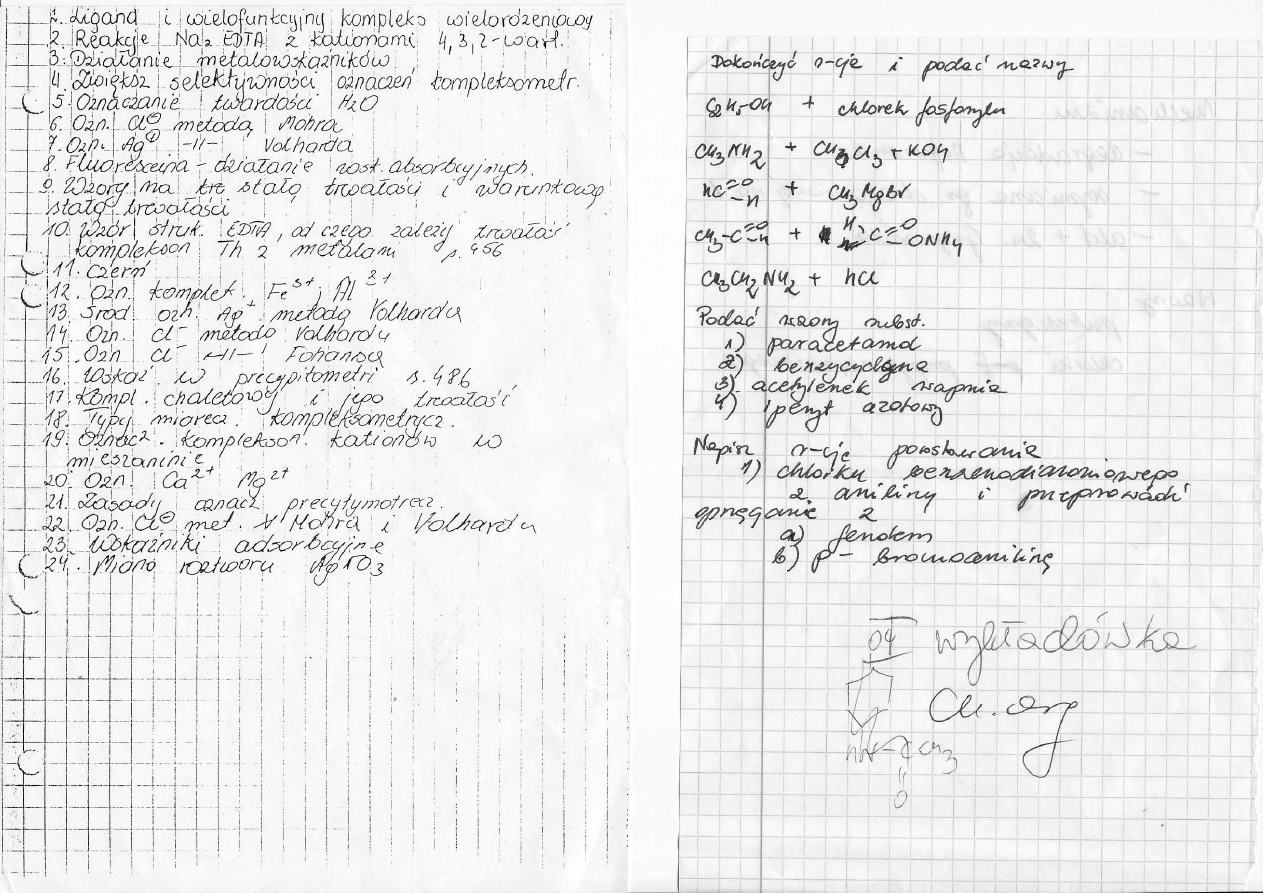 1. Ligand i wielofunkcyjny kompleks wielordzeniowy
2. Reakcje Na₂ EDTA z kationami 4,3,2-wart.
3. Działanie metalowskaźników
4. Zwiększ selektywności oznaczeń kompleksometr.
5. Oznaczanie twardości H₂O
6. Ozn. Cl⊖ metodą Mohra
7. Ozn. Ag⊕ -||- Volharda
8. Fluoresceina - działanie wsk. absorbcyjnych.
9. Wzory na stałą trwałości i warunkową
stałą trwałości
10. Wzór struk. EDTA, od czego zależy trwałość
komplekson Th z metalami s. 456
11. Czerń
12. Ozn. komplet. Fe³⁺, Al²⁺
13. Środ ozn. Ag⁺ metodą Volharda
14. Ozn. Cl⁻ metodą Volhardu
15. Ozn Cl⁻ -||- Fahansa
16. Wskaź. w precypitometri s. 486
17. Kompl. chaletowy i jego trwałość
18. Typy miarecz. kompleksometrycz.
19. Oznacz. kompleksom. kationów w
mieszaninie
20. Ozn. Ca²⁺ Mg²⁺
21. Zasady oznacz precytymotrecz.
22. Ozn. Cl⊖ met. Mohra i Volhardu
23. Wskaźniki adsorbcyjne
24. Miano roztworu AgNO₃
Dokończyć r-cje i podać nazwy
C₂H₅OH + chlorek fosforylu
CH₃NH₂ + CH₃Cl₃ + KOH
HC=O -H + CH₃MgBr
CH₃-C=O -H + C=O ONH₄
CH₃CH₂NH₂ + HCl
Podać wzory subst.
1) paracetamol
2) benzycyclyna
3) acetylenek wapnia
4) iperyt azotowy
Napisz r-cje powstawania
1) chlorku benzenodiazoniowego
z aniliny i przeprowadź
sprzęganie z
a) fenolem
b) p - bromoaniliną
OH wykładówka
Ch. org
NH-C CH₃
O